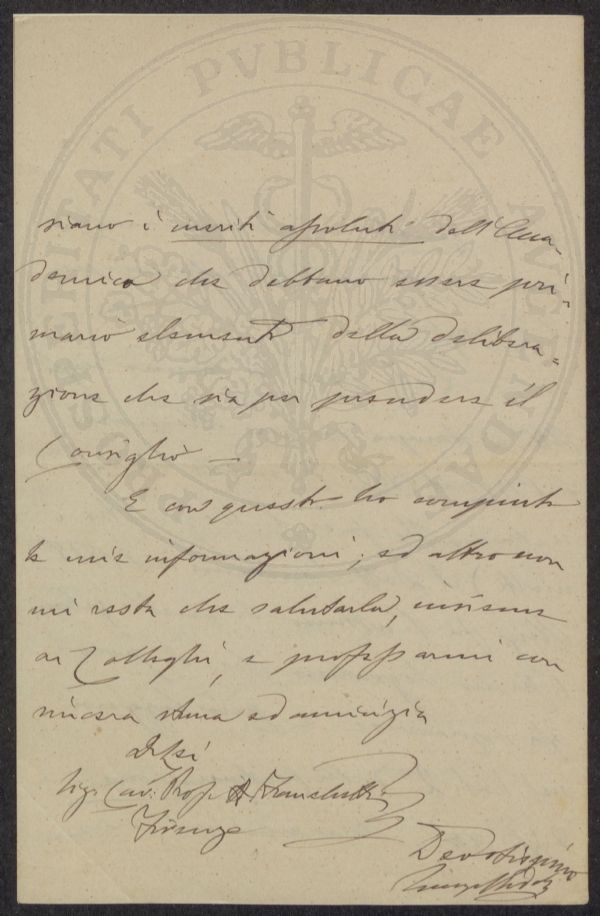 PVBLICAE
siano i meriti assoluti dell'Acca-
demico che debbano essere pri-
mario elemento della delibera-
zione che sia per prendere il
Consiglio —
E con questo ho compiuto
le mie informazioni; ed altro non
mi resta che salutarla, insieme
ai Colleghi, e professarmi con
sincera stima ed amicizia
Di Lei
Sigr Cav: Prof.
Firenze
Devotissimo